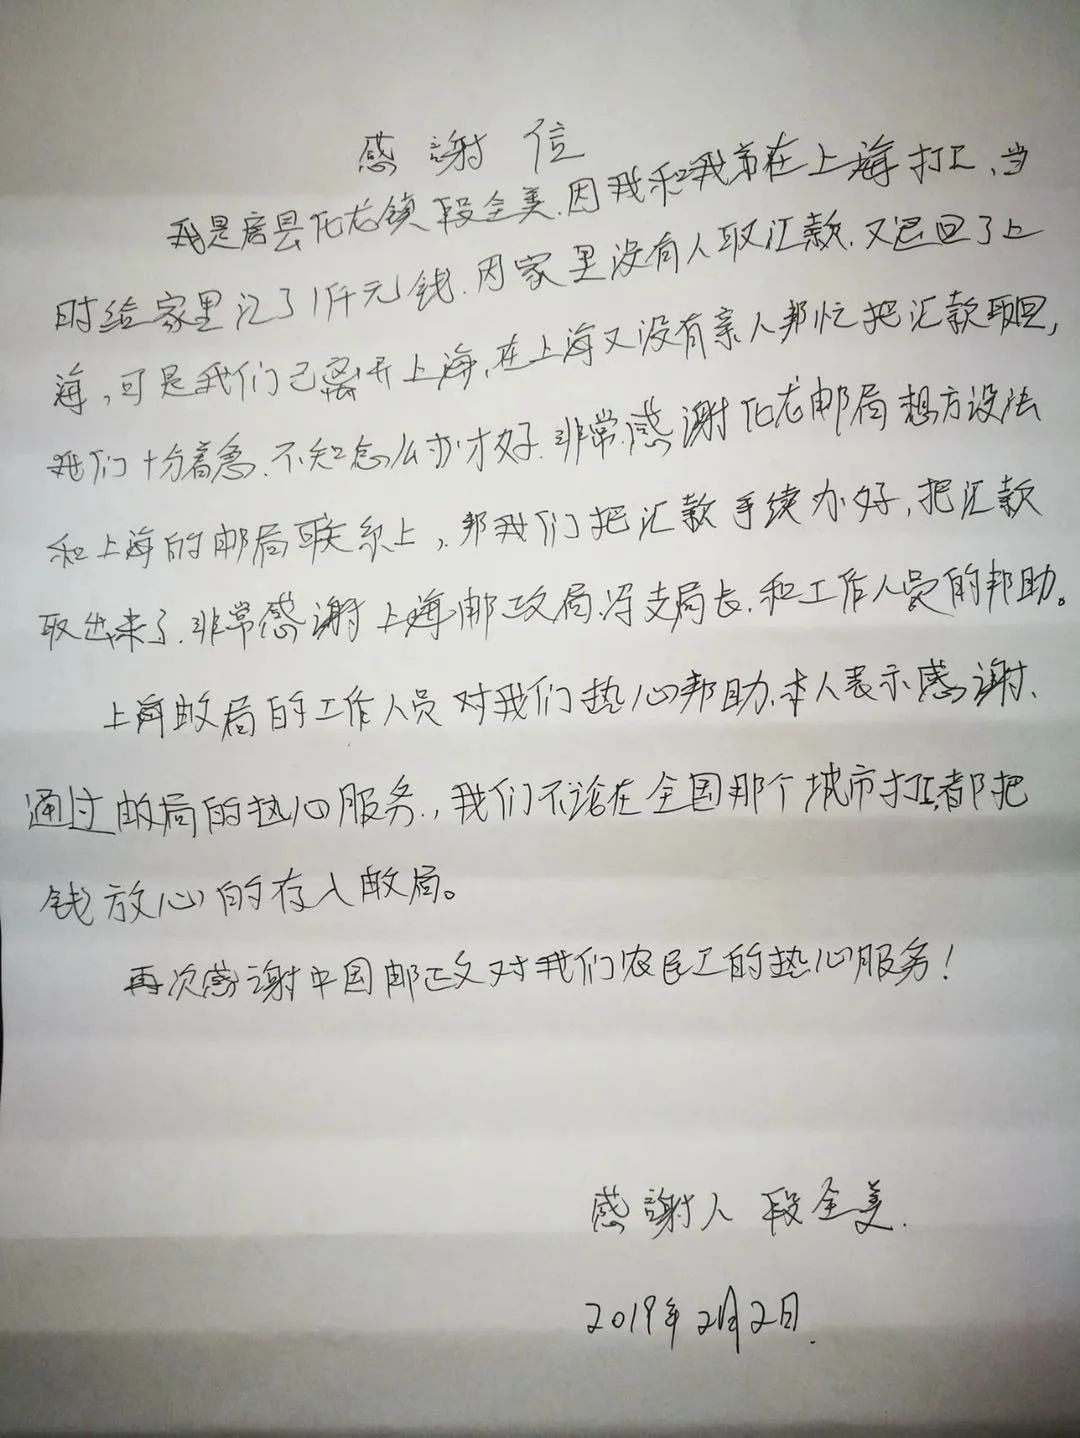 感謝信
我是房县化龙镇段全美.因我和我弟在上海打工、当
时给家里汇了1仟元钱.因家里没有人取汇款.又退回了上
海,可是我们已离开上海,在上海又没有亲人帮忙把汇款取回,
我们十分着急.不知怎么办才好.非常感谢化龙邮局想方设法
和上海的邮局联系上,邦我们把汇款手续办好,把汇款
取出来了.非常感谢上海邮政局冯支局长.和工作人员的邦助。
上海邮局的工作人员对我们热心邦助.本人表示感谢、
通过邮局的热心服务.,我们不论在全国那个城市打工,都把
钱放心的存入邮局。
再次感谢中国邮政对我们农民工的热心服务!
感謝人 段全美.
2019年2月2日.